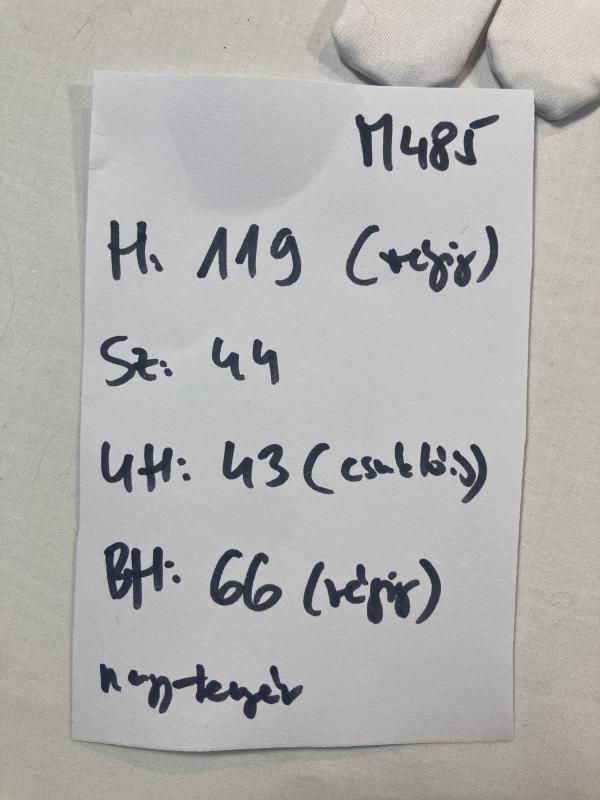 M485
H. 119 (végig)
Sz: 44
UH: 43 (csukló.ig)
BH: 66 (végig)
nagy-tenyér